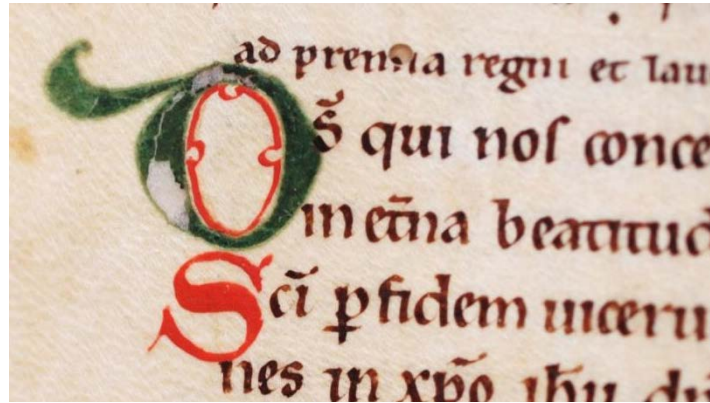 ad premia regni et lau
Ds̄ qui nos conce
in et̄na beatitud
Scī p fidem uiceru
nes in xp̄o ihu dn̄